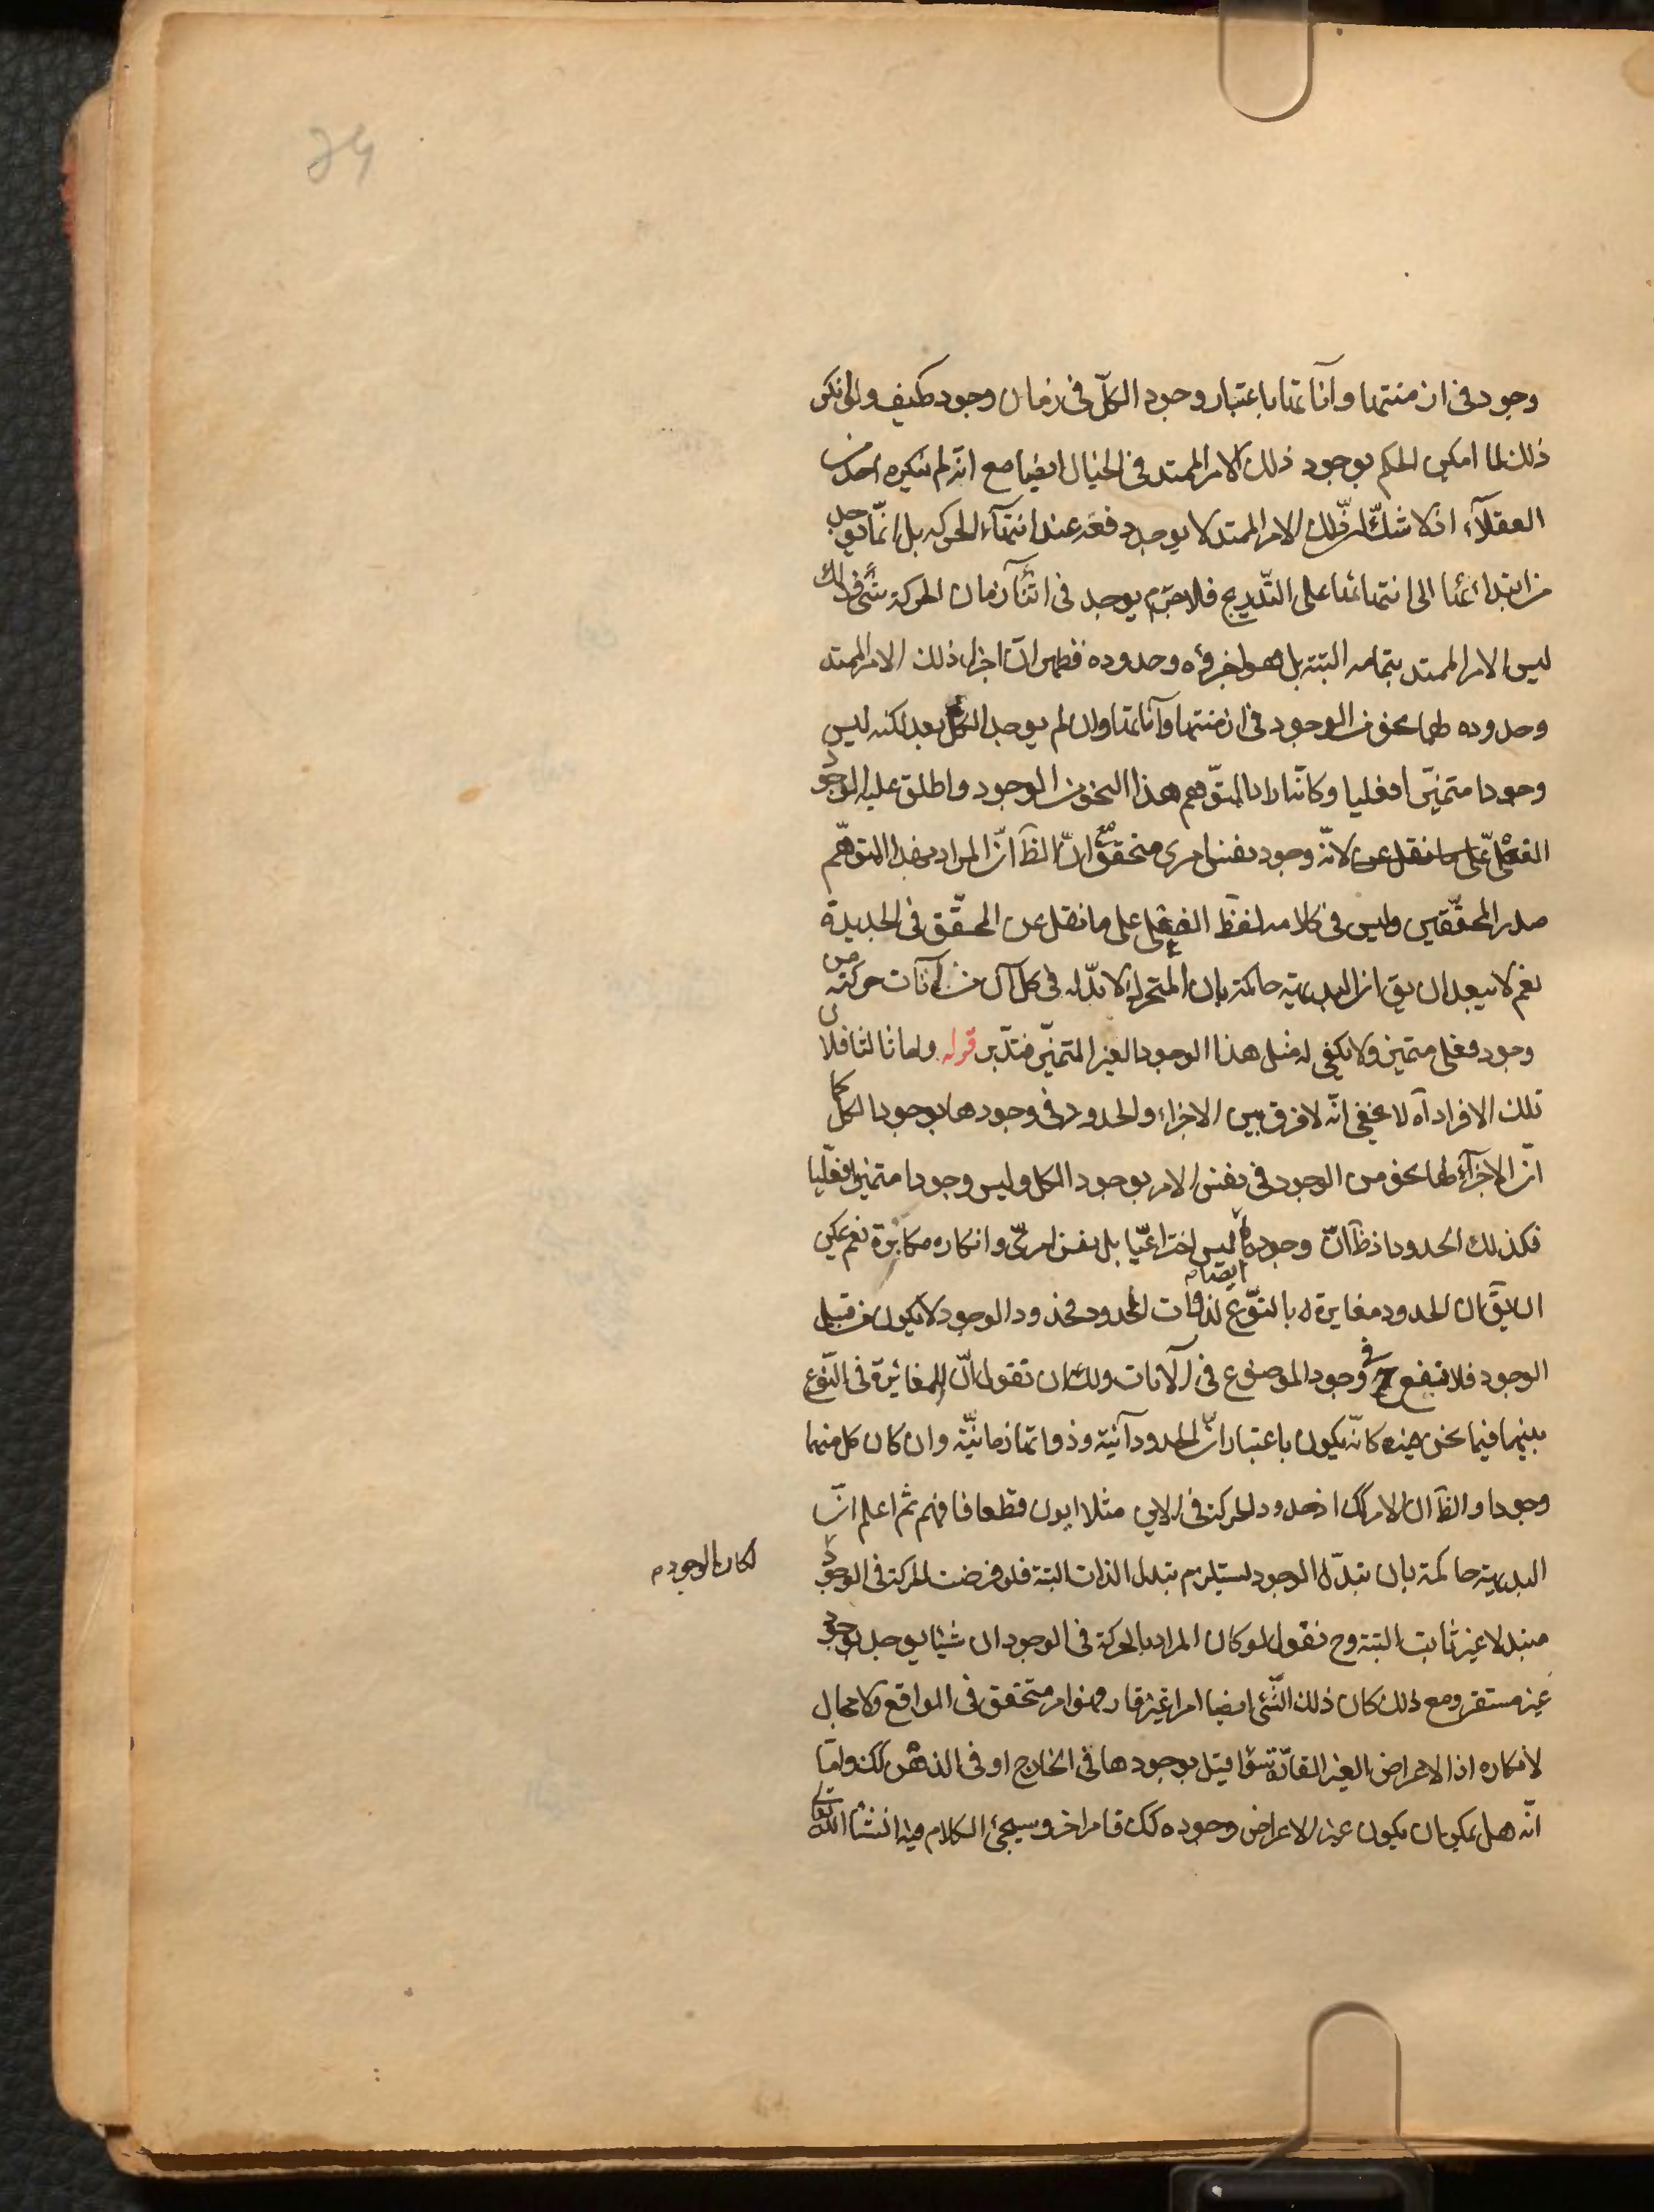 وجود فی ازمنتها وآناتها باعتبار وجود الکلّ فی زمان وجود کیف ولو انکر
ذلک لما امکن الحکم بوجود ذلک الامر الممتد فی الخیال ایضا مع انه لم ینکره احد من
العقلآء اذ لا شکّ انّ ذلک الامر الممتد لا یوجد دفعة عند انتهآء الحرکه بل انّما یوجد
من ابتدائها الی انتهائها علی التّدریج فلا جرم یوجد فی اثنآء زمان الحرکة شئ و ذلک
لیس الامر الممتد بتمامه البتة بل هو اجزؤه وحدوده فظهر انّ اجزاء ذلک الامر الممتد
وحدوده لها نحو من الوجود فی ازمنتها وآناتها وان لم یوجد الکل بعد لکنه لیس
وجودا متمیّزا فعلیا وکانّه اراد بالتوّهم هذا النحو من الوجود واطلق علیه الوجود
الفعلی علی ما نقل عن لانّه وجود نفس امری متحقق مع انّ الظآ انّ المراد بهذا المتوهّم
صدر المحقّقین ولیس فی کلامه لفظ الفعلی علی ما نقل عن المحقّق فی الجدیدة
نعم لا یبعد ان یق ان البدیهیة حاکمة بان المتحرک لا بدّ له فی کل آن من آنات حرکته من
وجود فعلی متمیز ولا یکفی له مثل هذا الوجود الغیر المتمیّز فتدّبر قوله واما ثالثا فلان
تلک الافراد آه لا یخفی انّه لا فرق بین الاجزاء والحدود فی وجودها بوجود الکل کما
انّ الاجزآء لها نحو من الوجود فی نفس الامر بوجود الکل ولیس وجودا متمیزا فعلّیا
فکذلک الحدود اذ ظآ انّ وجودها ایضا لیس اختراعیّا بل نفس امریّ وانکاره مکابرة نعم یمکن
ان یقآ ان الحدود مغایرة بالنوّع لذوات الحدود فحدود الوجود لا یکون من قبیل
الوجود فلا ینفع ح فی وجود الموضوع فی الآنات ولک ان تقول انّ المغائرة فی النّوع
بینهما فیما نحن فیه کانّه یکون باعتبار انّ الحدود آنیة وذواتها زمانیّة وان کان کل منهما
وجودا والظآ ان الامر کک اذ حدود الحرکة فی الاین مثلا ایون قطعا فافهم ثم اعلم انّ
البدیهیة حاکمة بان تبدّل الوجود یستلزم تبدل الذات البتة فلو فرضت الحرکة فی الوجود
لکان الوجود م
متبدلا غیر ثابت البتة وح نقول لو کان المراد بالحرکة فی الوجود ان شیئا یوجد بوجود
غیر مستقر ومع ذلک کان ذلک الشّئ ایضا امرا غیر قار فهو امر متحقق فی الواقع ولا مجال
لانکاره اذ الاعراض الغیر القارّة سوآ قیل بوجودها فی الخارج او فی الذهن کک وامّا
انّه هل یمکن ان یکون غیر الاعراض وجوده کک فامر اخر وسیجئ الکلام فیه انشا الله تعالی